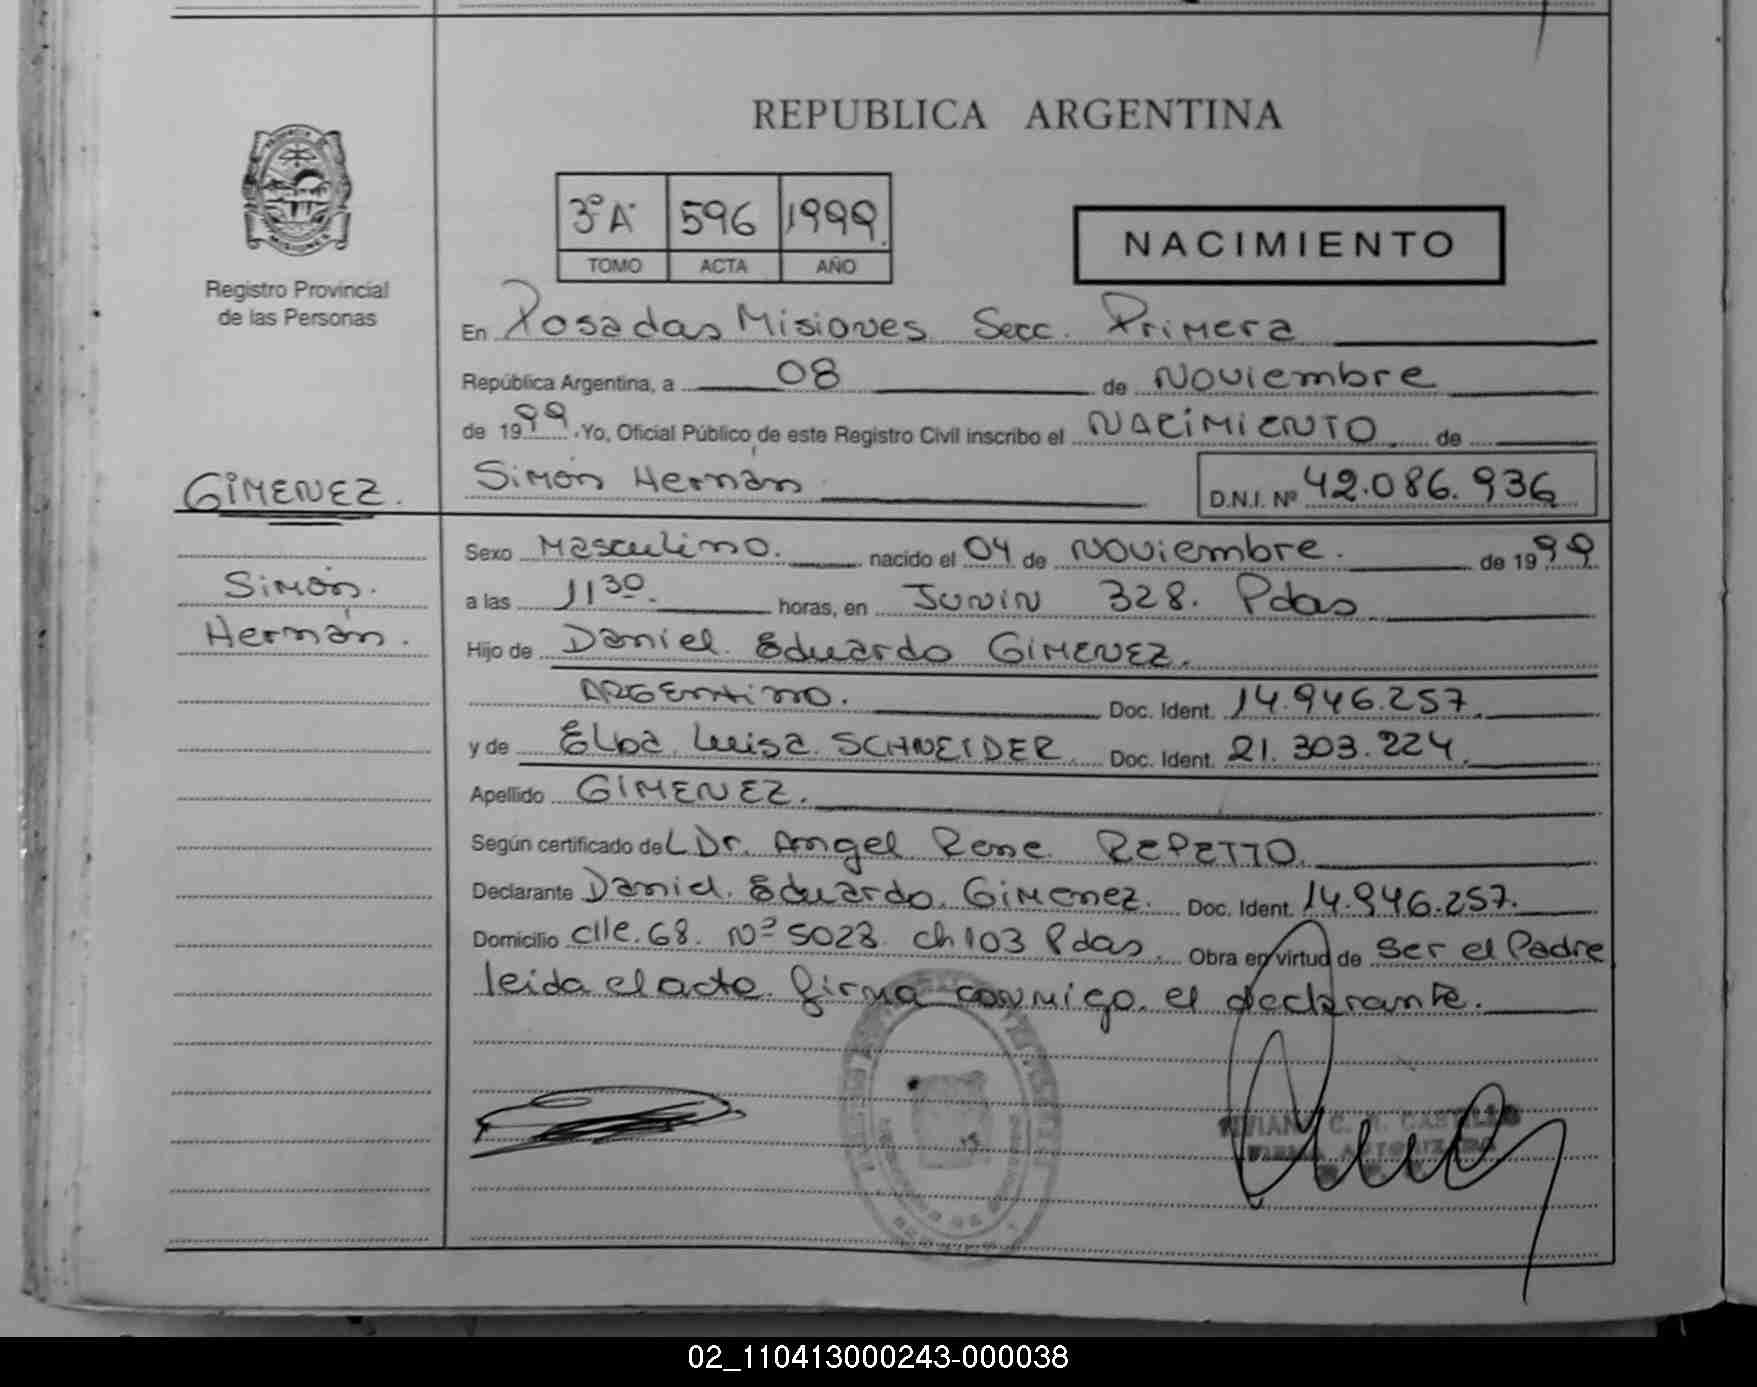 REPUBLICA ARGENTINA
3º A 596 1999.
TOMO ACTA AÑO
NACIMIENTO
Registro Provincial
de las Personas
En Posadas Misiones Secc. Primera
República Argentina, a 08 de Noviembre
de 1999. Yo, Oficial Público de este Registro Civil inscribo el NACIMIENTO de
GIMENEZ.
Simón Hernán
D.N.I. Nº 42.086.936
Sexo Masculino. nacido el 04 de Noviembre. de 1999
Simón.
a las 11 30. horas, en JUNIN 328. Pdas
Hernán.
Hijo de Daniel Eduardo GIMENEZ.
ARGEntino. Doc. Ident. 14.946.257.
y de Elba Luisa SCHNEIDER Doc. Ident. 21.303.224.
Apellido GIMENEZ.
Según certificado del Dr. Angel Rene REPETTO.
Declarante Daniel Eduardo Gimenez. Doc. Ident. 14.946.257.
Domicilio clle. 68. Nº 5023. ch 103 Pdas. Obra en virtud de ser el Padre
leida el acta firma conmigo el declarante.
C. R. CASTILLO
FIRMA AUTORIZADA
02_110413000243-000038